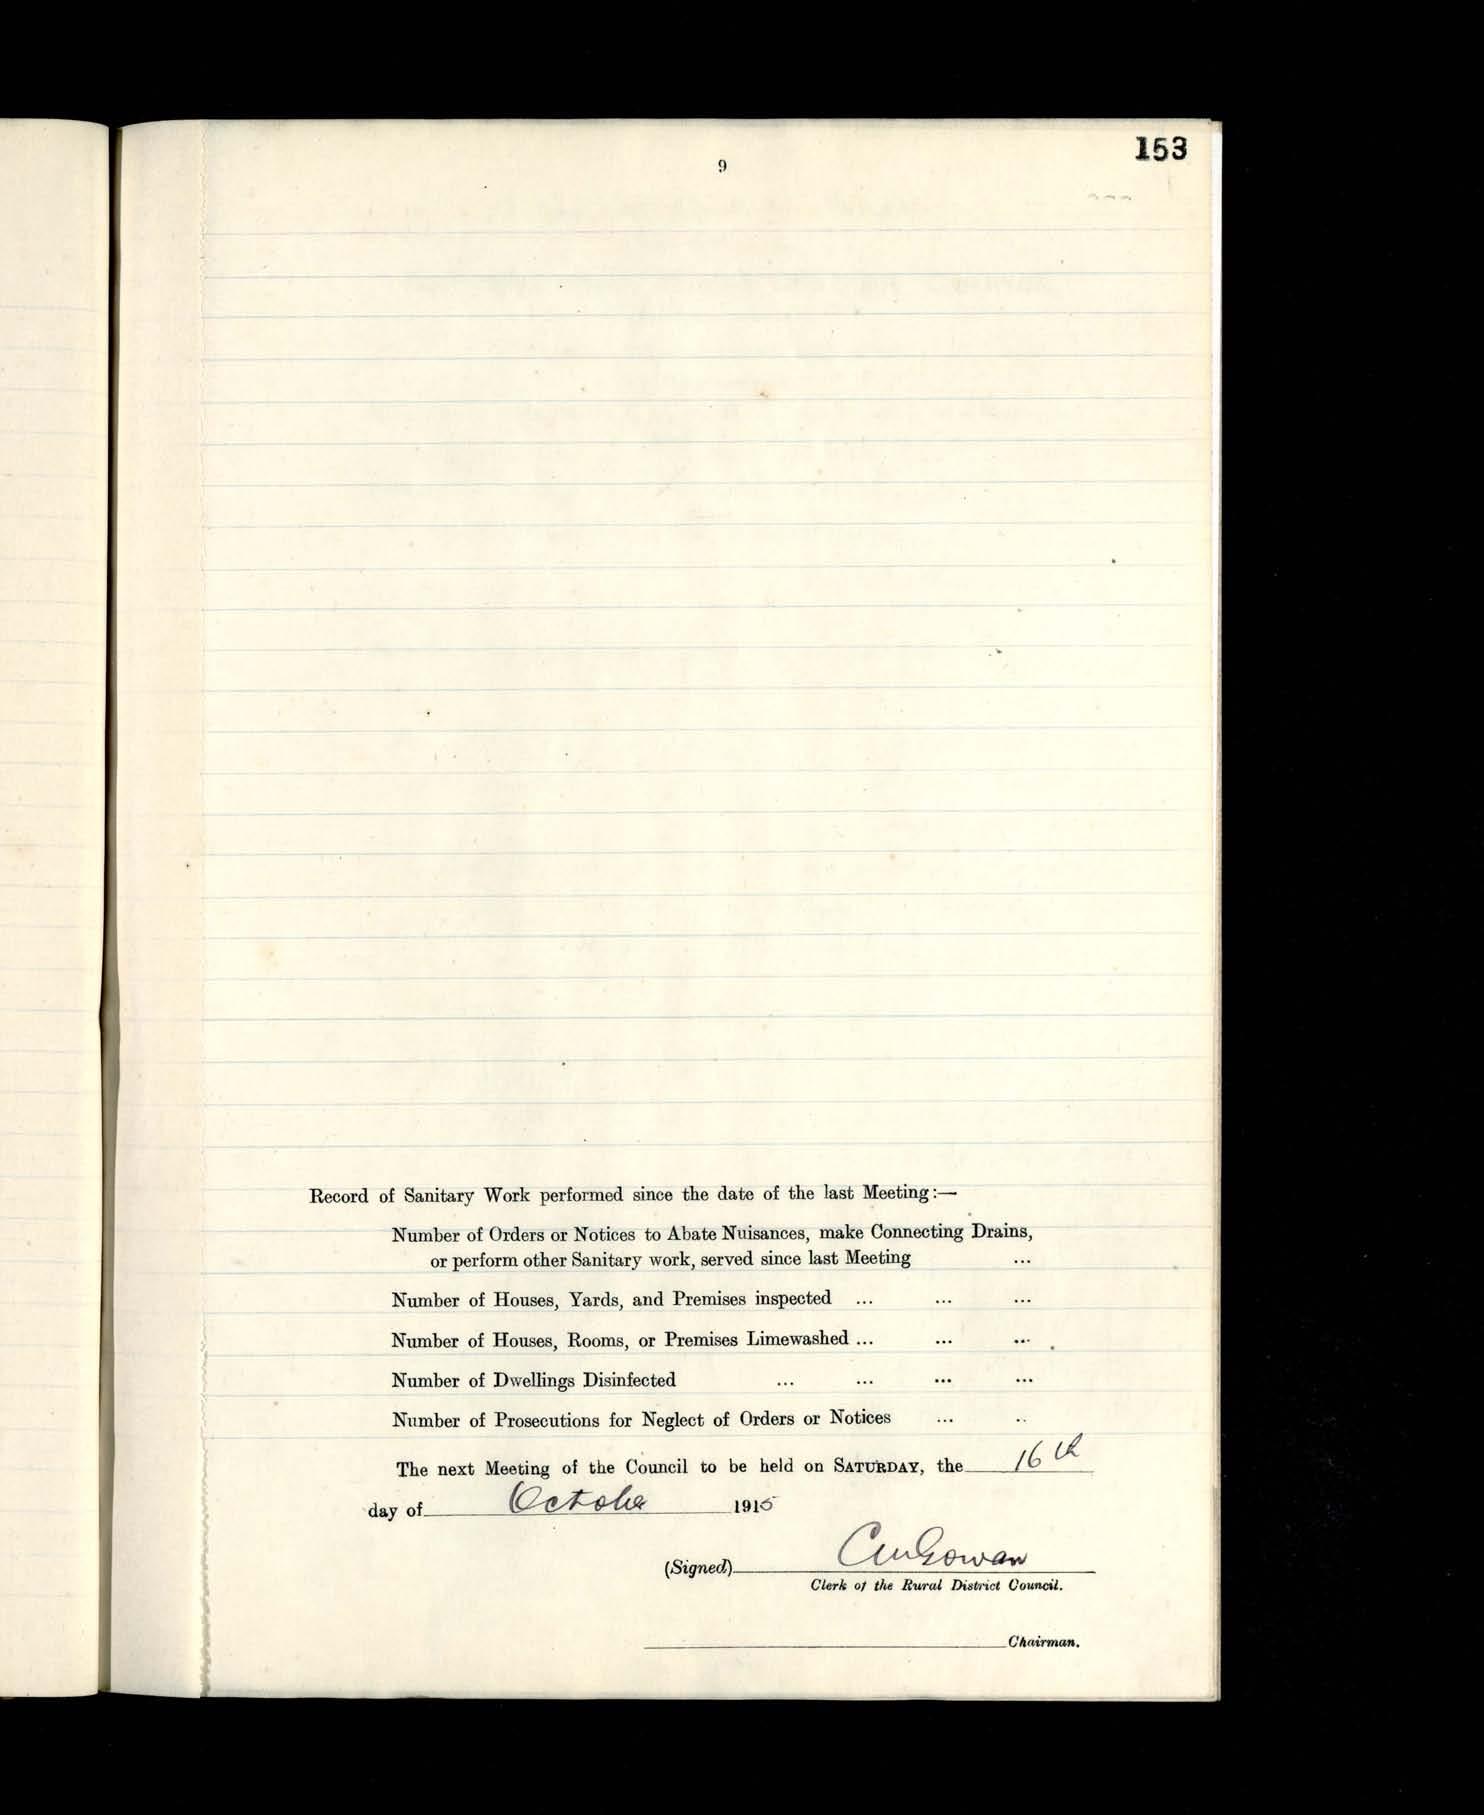 153
9
Record of Sanitary Work performed since the date of the last Meeting:—
Number of Orders or Notices to Abate Nuisances, make Connecting Drains,
or perform other Sanitary work, served since last Meeting ...
Number of Houses, Yards, and Premises inspected ... ... ...
Number of Houses, Rooms, or Premises Limewashed ... ... ...
Number of Dwellings Disinfected ... ... ... ...
Number of Prosecutions for Neglect of Orders or Notices ... ..
The next Meeting of the Council to be held on SATURDAY, the 16th
day of October 1915
(Signed) Gowan
Clerk of the Rural District Council.
Chairman.